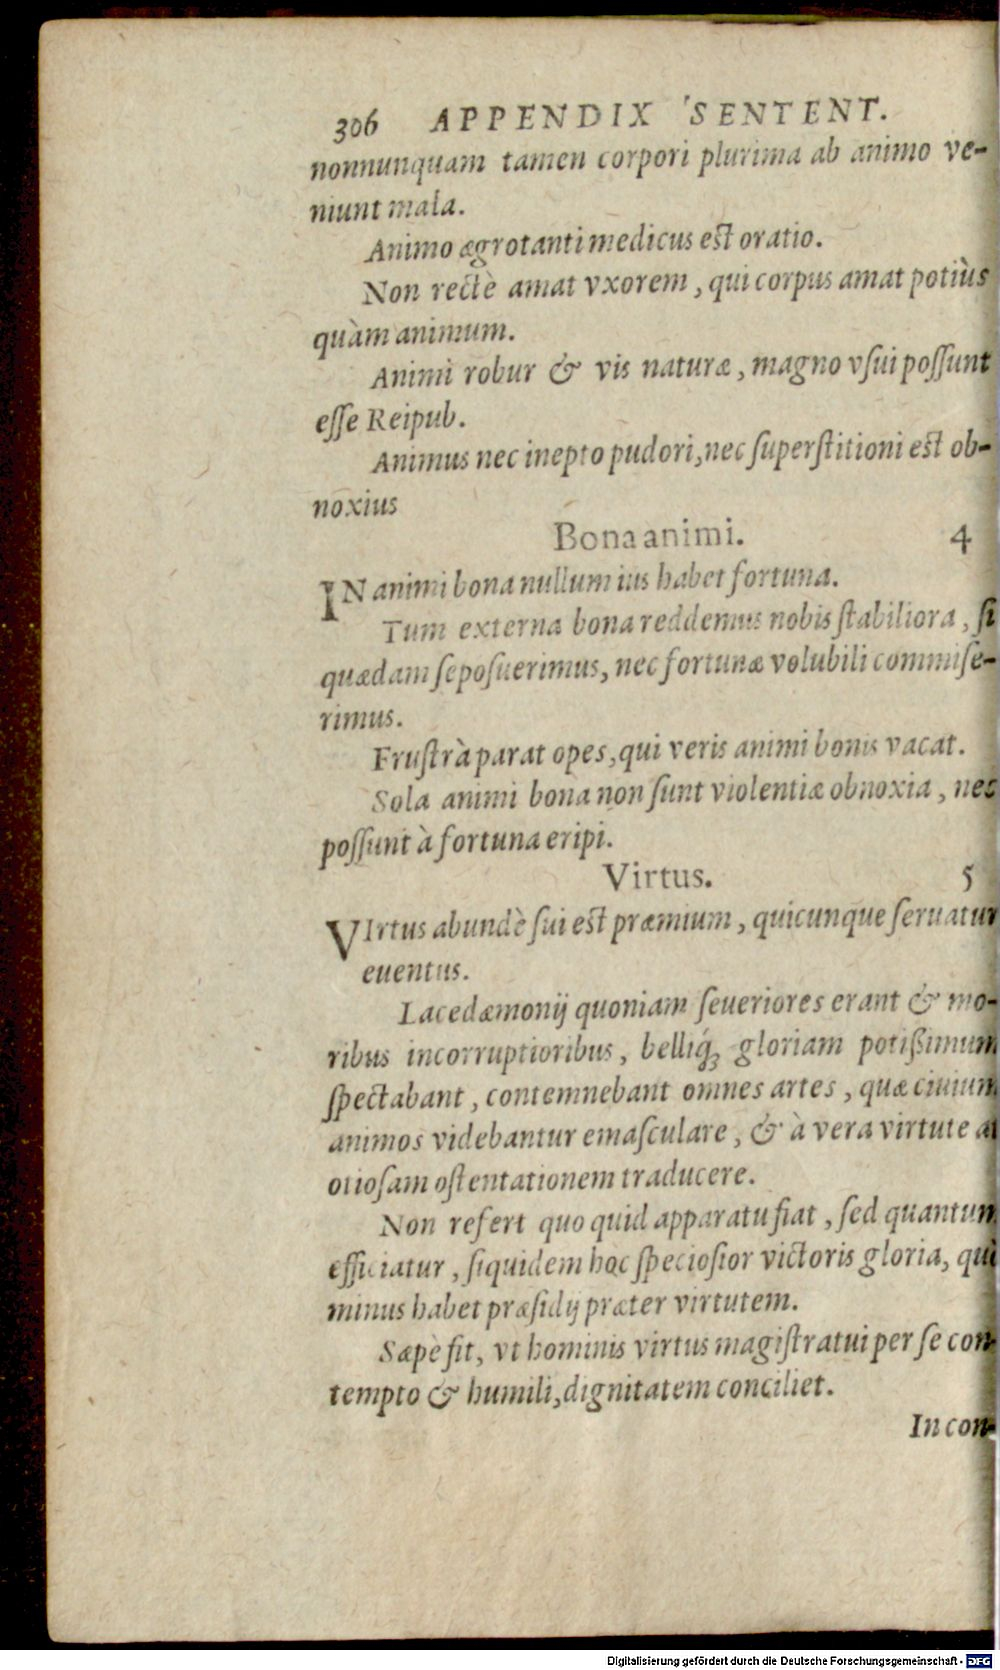 306 APPENDIX SENTENT.
nonnunquam tamen corpori plurima ab animo ve-
niunt mala.
Animo ægrotanti medicus est oratio.
Non rectè amat vxorem, qui corpus amat potiùs
quàm animum.
Animi robur & vis naturæ, magno vſui poſſunt
eſſe Reipub.
Animus nec inepto pudori, nec ſuperſtitioni est ob-
noxius
Bona animi. 4
IN animi bona nullum ius habet fortuna.
Tum externa bona reddemus nobis ſtabiliora, ſi
quædam ſepoſuerimus, nec fortunæ volubili commiſe-
rimus.
Fruſtrà parat opes, qui veris animi bonis vacat.
Sola animi bona non ſunt violentiæ obnoxia, nec
poſſunt à fortuna eripi.
Virtus. 5
VIrtus abundè ſui est præmium, quicunque ſeruatur
euentus.
Lacedæmonij quoniam ſeueriores erant & mo-
ribus incorruptioribus, belliq́ꝫ gloriam potiſsimum
ſpectabant, contemnebant omnes artes, quæ ciuium
animos videbantur emaſculare, & à vera virtute a
otioſam oſtentationem traducere.
Non refert quo quid apparatu fiat, ſed quantum
efficiatur, ſiquidem hoc ſpecioſior victoris gloria, quò
minus habet præſidij præter virtutem.
Sæpè fit, vt hominis virtus magiſtratui per ſe con-
tempto & humili, dignitatem conciliet.
In con-
Digitalisierung gefördert durch die Deutsche Forschungsgemeinschaft - DFG